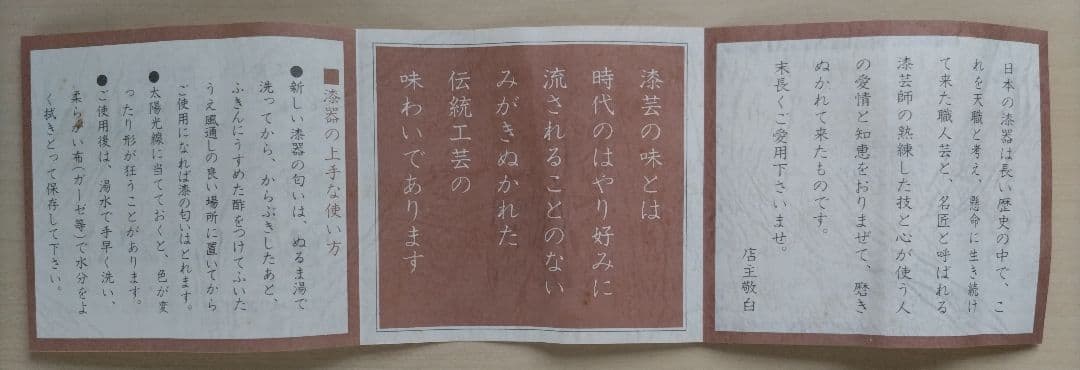 日本の漆器は長い歴史の中で、こ
れを天職と考え、懸命に生き続け
て来た職人芸と、名匠と呼ばれる
漆芸師の熟練した技と心が使う人
の愛情と知恵をおりまぜて、磨き
ぬかれて来たものです。
末長くご愛用下さいませ。
店主敬白
漆芸の味とは
時代のはやり好みに
流されることのない
みがきぬかれた
伝統工芸の
味わいであります
■漆器の上手な使い方
●新しい漆器の匂いは、ぬるま湯で
洗ってから、からぶきしたあと、
ふきんにうすめた酢をつけてふいた
うえ風通しの良い場所に置いてから
ご使用になれば漆の匂いはとれます。
●太陽光線に当てておくと、色が変
ったり形が狂うことがあります。
●ご使用後は、湯水で手早く洗い、
柔らかい布(ガーゼ等)で水分をよ
く拭きとって保存して下さい。